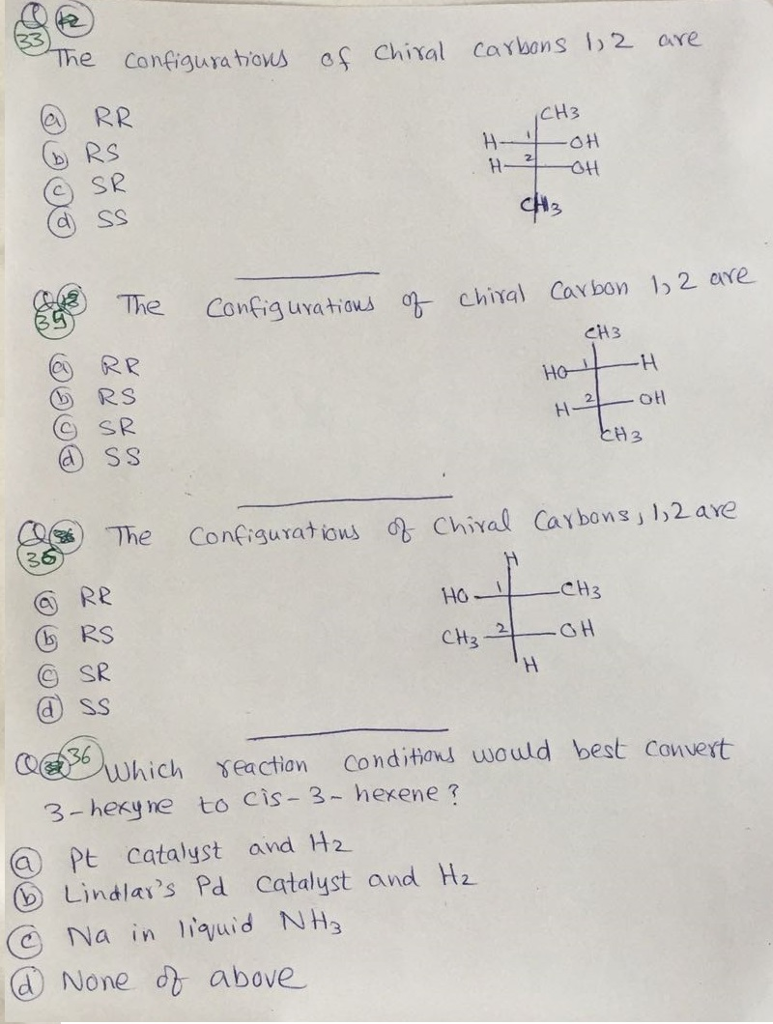 Q 12
33
The configurations of chiral carbons 1,2 are
a RR
b RS
c SR
d SS
CH3
H 1 OH
H 2 OH
CH3
Q
34 The Configurations of chiral Carbon 1,2 are
a RR
b RS
c SR
d SS
CH3
HO 1 H
H 2 OH
CH3
Q The Configurations of Chiral Carbons, 1,2 are
35
a RR
b RS
c SR
d SS
H
HO 1 CH3
CH3 2 OH
H
Q 36 Which reaction conditions would best convert
3-hexyne to cis-3-hexene?
a Pt catalyst and H2
b Lindlar's Pd catalyst and H2
c Na in liquid NH3
d None of above